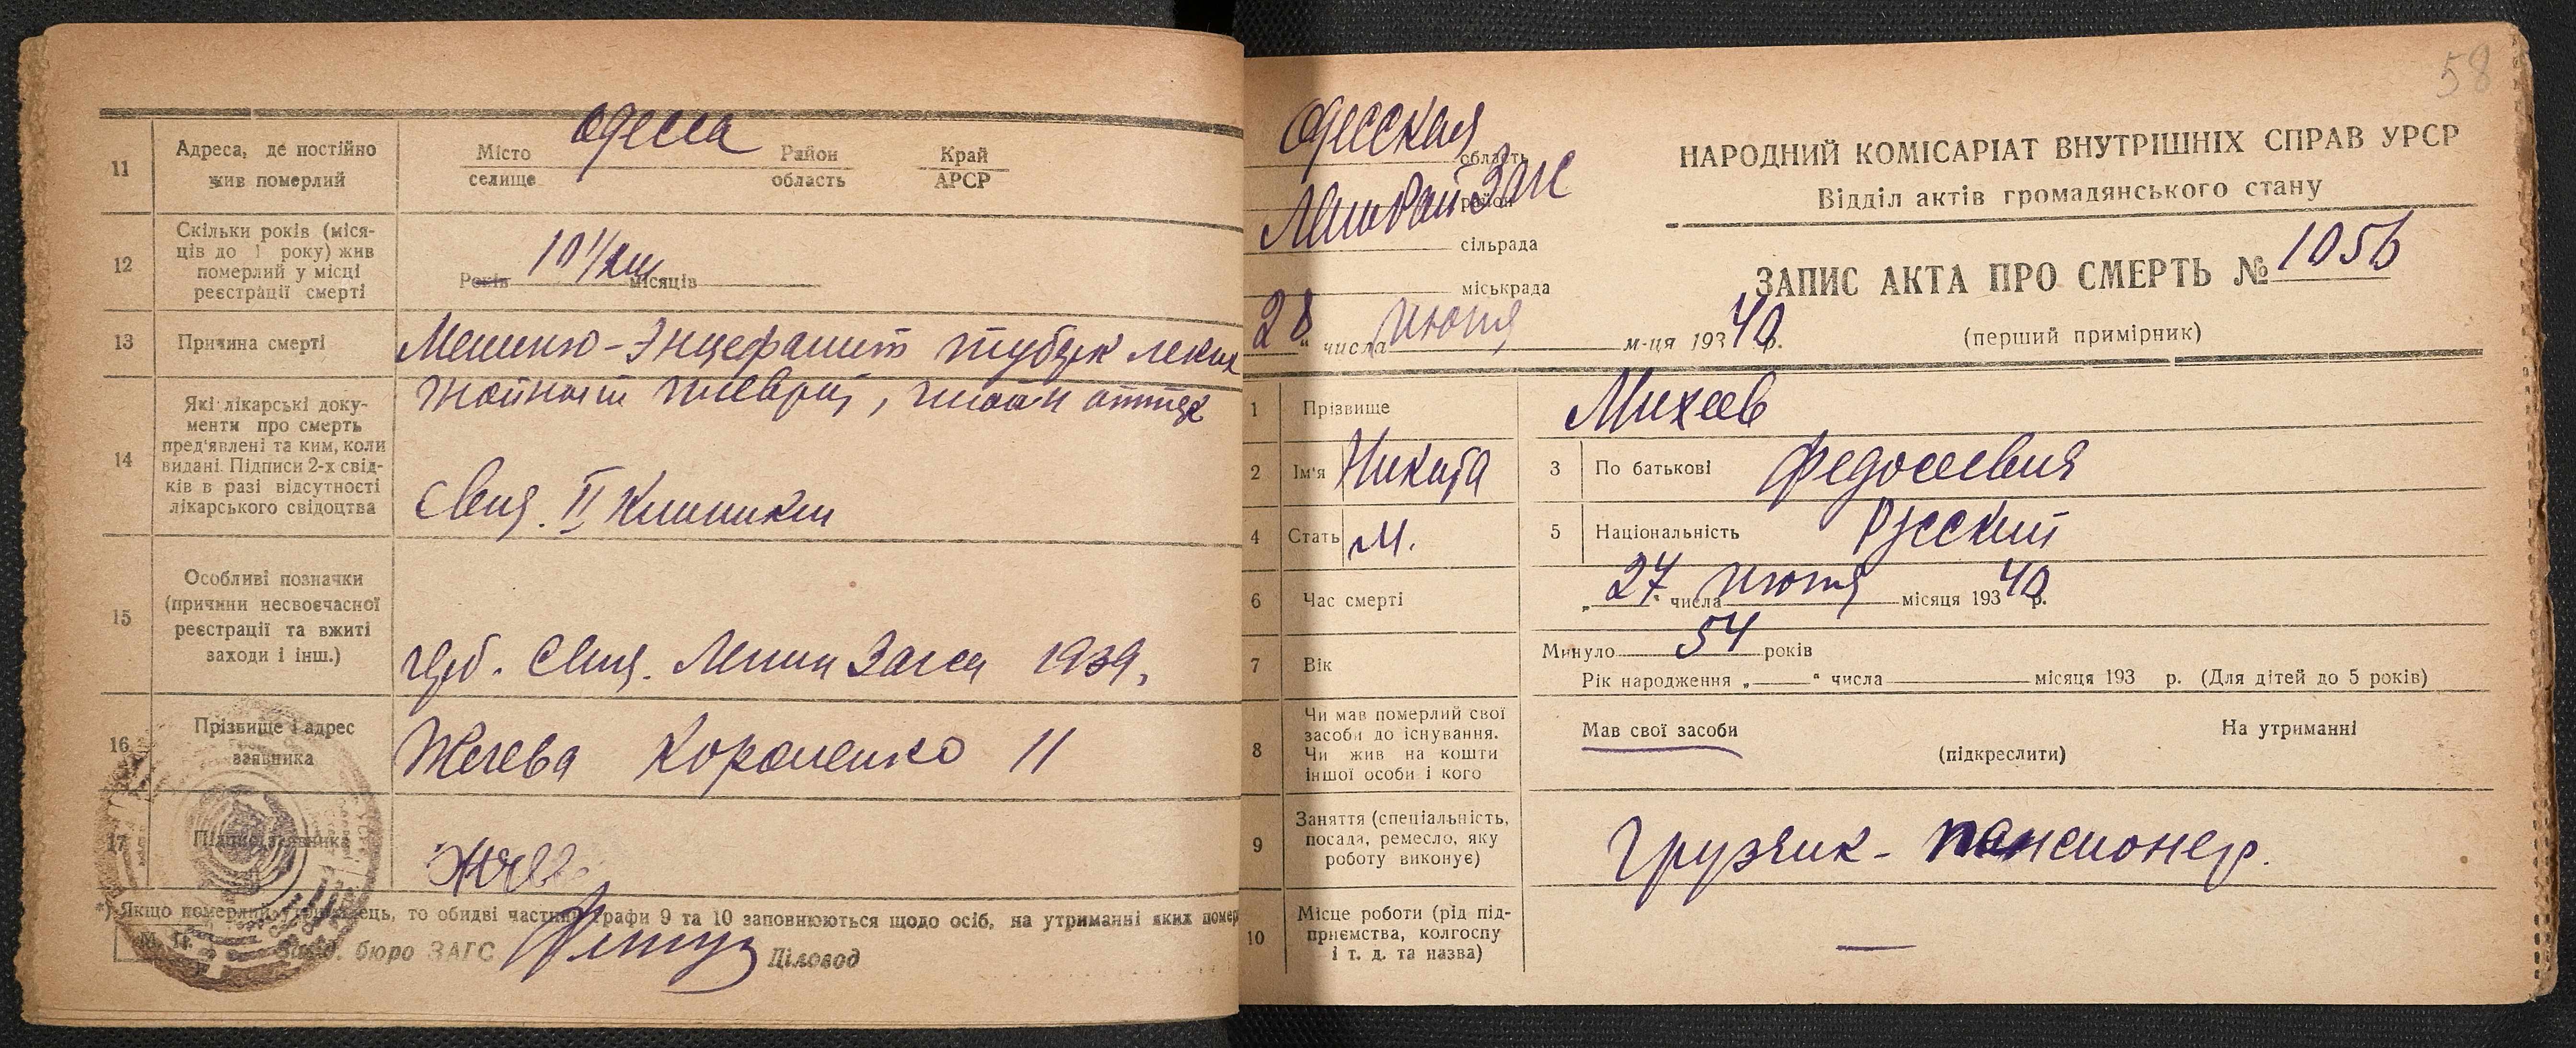 11
Адреса, де постійно
жив померлий
Одесса
Місто
селище
Район
область
Край
АРСР
12
Скільки років (міся-
ців до 1 року) жив
померлий у місці
реєстрації смерті
Років 10 місяців
13
Причина смерті
Менинго-Энцефалит туберк легких
14
Які лікарські доку-
менти про смерть
пред'явлені та ким, коли
видані. Підписи 2-х свід-
ків в разі відсутності
лікарського свідоцтва
плеврит,
Свид. II Клиники
15
Особливі позначки
(причини несвоєчасної
реєстрації та вжиті
заходи і інш.)
Свид. Ленин Загса 1939,
16
Прізвище і адрес
заявника
Короленко 11
17
Підпис заявника
*) Якщо померлий утриманець, то обидві частини графи 9 та 10 заповнюються щодо осіб, на утриманні яких помер
М. П.
Завід. бюро ЗАГС
Діловод
58
Одесская
область
ЛенРайЗагс
район
сільрада
міськрада
28 " числа Июня м-ця 193 40 р.
НАРОДНИЙ КОМІСАРІАТ ВНУТРІШНІХ СПРАВ УРСР
Відділ актів громадянського стану
ЗАПИС АКТА ПРО СМЕРТЬ № 1056
(перший примірник)
1
Прізвище
Михеев
2
Ім'я
Никита
3
По батькові
Федосеевич
4
Стать
М.
5
Національність
Русский
6
Час смерті
„ 27 " числа Июня місяця 193 40 р.
7
Вік
Минуло 54 років
Рік народження „ " числа місяця 193 р. (Для дітей до 5 років)
8
Чи мав померлий свої
засоби до існування.
Чи жив на кошти
іншої особи і кого
Мав свої засоби
На утриманні
(підкреслити)
9
Заняття (спеціальність,
посада, ремесло, яку
роботу виконує)
Грузчик - пенсионер.
10
Місце роботи (рід під-
приємства, колгоспу
і т. д. та назва)
—